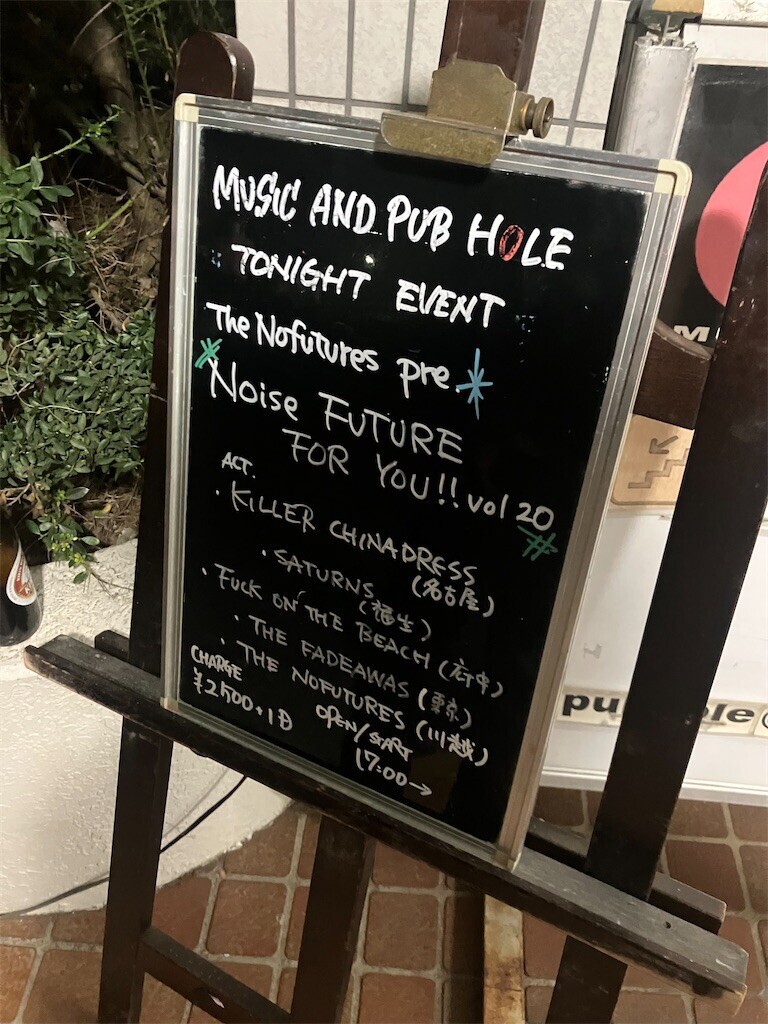 MUSIC AND PUB HOLE
TONIGHT EVENT
The Nofutures pre.
Noise FUTURE
FOR YOU!! vol 20
ACT.
・KILLER CHINADRESS
(名古屋)
・SATURNS
(福生)
・FUCK ON THE BEACH (府中)
・THE FADEAWAS (東京)
・THE NOFUTURES (川越)
CHARGE
¥2500+1D
OPEN/START
17:00→
M
pu
le